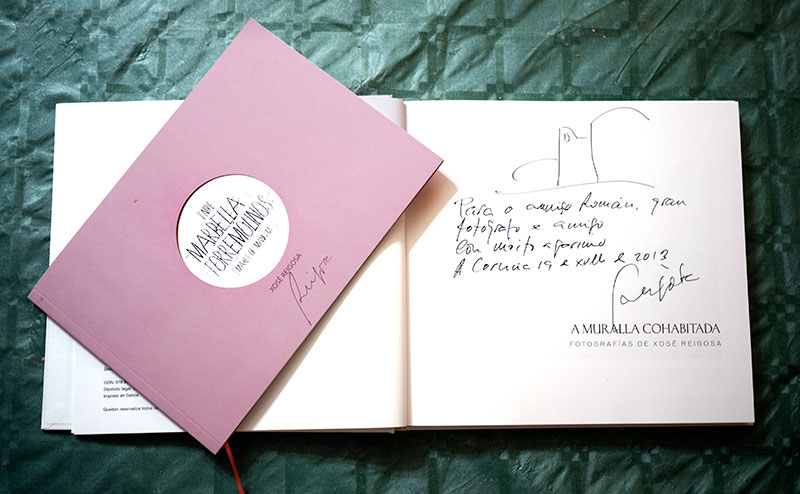 ENTRE
MARBELLA
TORREMOLINOS
XOSÉ REIGOSA
Reigosa
ISBN: 978
Depósito legal:
Impreso en Galicia
Quedan reservados todos
Para o amigo Román, gran
fotógrafo e amigo
Con moito agarimo
A Coruña 19 e xullo 2013
Reigosa
A MURALLA COHABITADA
FOTOGRAFÍAS DE XOSÉ REIGOSA